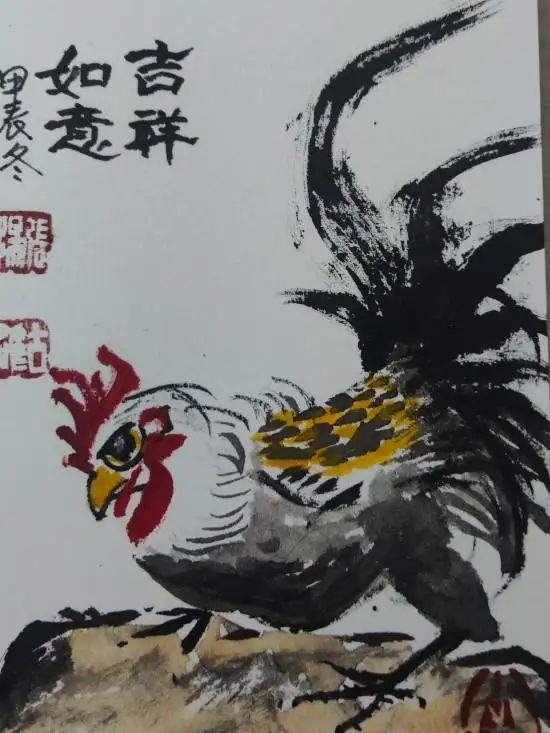 吉祥
如意
甲辰冬